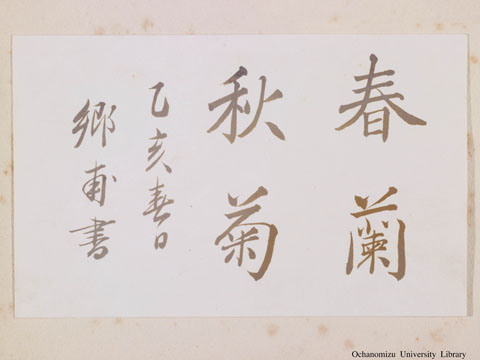 春蘭
秋菊
乙亥春日
郷甫書
Ochanomizu University Library